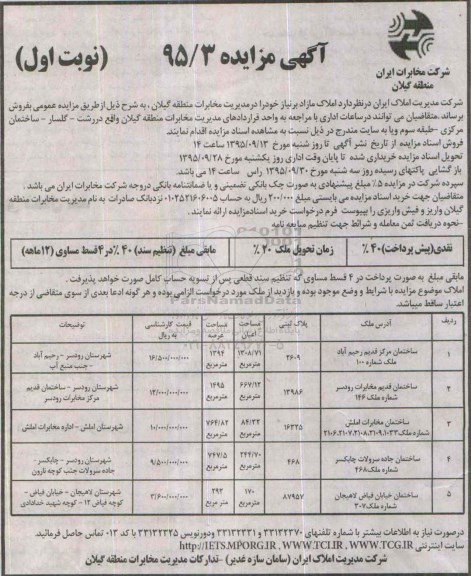 شرکت مخابرات ایران
منطقه گیلان
آگهی مزایده ۹۵/۳ (نوبت اول)
شرکت مدیریت املاک ایران درنظردارد املاک مازاد برنیاز خودرا درمدیریت مخابرات منطقه گیلان ، به شرح ذیل ازطریق مزایده عمومی بفروش
برساند .متقاضیان می توانند درساعات اداری با مراجعه به واحد قراردادهای مدیریت مخابرات منطقه گیلان واقع دررشت - گلسار - ساختمان
مرکزی -طبقه سوم ویا به سایت مندرج در ذیل نسبت به مشاهده اسناد مزایده اقدام نمایند.
فروش اسناد مزایده از تاریخ نشر آگهی تا روز شنبه مورخ ۱۳۹۵/۰۹/۱۳ ساعت ۱۴
تحویل اسناد مزایده خریداری شده تا پایان وقت اداری روز یکشنبه مورخ ۱۳۹۵/۰۹/۲۸
باز گشایی پاکتهای رسیده روز سه شنبه مورخ ۱۳۹۵/۰۹/۳۰ راس ساعت ۱۴ می باشد.
سپرده شرکت در مزایده ۵٪ مبلغ پیشنهادی به صورت چک بانکی تضمینی و یا ضمانتنامه بانکی دروجه شرکت مخابرات ایران می باشد .
متقاضیان جهت خرید اسناد مزایده می بایستی مبلغ ۲۰۰/۰۰۰ ریال به حساب ۰۱۰۲۵۳۱۶۰۶۰۰۵ نزدبانک صادرات به نام مدیریت مخابرات منطقه
گیلان واریز و فیش واریزی را بپیوست فرم درخواست خرید اسنادمزایده ارائه نمایند .
-نحوه دریافت ثمن معامله و شرائط جهت تنظیم مبایعه نامه
نقدی(پیش پرداخت)۴۰٪ زمان تحویل ملک ۲۰٪ مابقی مبلغ (تنظیم سند) ۴۰٪در۴قسط مساوی (۱۲ماهه)
مابقی مبلغ به صورت پرداخت در ۴ قسط مساوی که تنظیم سند قطعی پس از تسویه حساب کامل صورت خواهد پذیرفت.
املاک موضوع مزایده با شرایط و وضع موجود بوده و بازدید از ملک مورد درخواست الزامی بوده و هر گونه ادعا بعدی از سوی متقاضی از درجه
اعتبار ساقط میباشد.
ردیف آدرس ملک پلاک ثبتی مساحت اعیان مساحت عرصه قیمت کارشناسی به ریال توضیحات
۱ ساختمان مرکز قدیم رحیم آباد ملک شماره ۱۰۰ ۲۶۰۹ ۱۳۰۸/۷۱ مترمربع ۱۳۹۴ مترمربع ۱۶/۵۰۰/۰۰۰/۰۰۰ شهرستان رودسر - رحیم آباد - جنب منبع آب
۲ ساختمان قدیم مخابرات رودسر ملک شماره ۱۴۶ ۱۳۹۸۶ ۶۶۷/۱۳ مترمربع ۱۶۹۵ مترمربع ۱۲/۰۰۰/۰۰۰/۰۰۰ شهرستان رودسر - ساختمان قدیم مرکز مخابرات رودسر
۳ ساختمان مخابرات املش شماره ملک۱۰۳۳،۲۱۰۹،۲۱۰۸،۲۱۰۷،۲۱۰۶ ۱۶۳۲۵ ۸۴/۳۲ مترمربع ۷۶۴/۸۲ مترمربع ۱۰/۰۰۰/۰۰۰/۰۰۰ شهرستان املش - اداره مخابرات املش
۴ ساختمان جاده سرولات چابکسر شماره ملک۴۶۸ ۴۶۸ ۲۴۴/۷۰ مترمربع ۷۴۷/۵ مترمربع ۹/۵۰۰/۰۰۰/۰۰۰ شهرستان رودسر - چابکسر- جاده سرولات جنب کوچه نارون
۵ ساختمان خیابان فیاض لاهیجان شماره ملک۳۰۷ ۸۷۹۵۷ ۱۷۰ مترمربع ۲۹۳ مترمربع ۳/۶۰۰/۰۰۰/۰۰۰ شهرستان لاهیجان - خیابان فیاض - کوچه فیاض ۱۲ - کوچه شهید خدادادی
درصورت نیاز به اطلاعات بیشتر با شماره تلفنهای ۳۳۱۳۲۲۷۰ و ۳۳۱۳۲۲۳۱ ودورنویس ۳۳۱۳۲۲۲۵ با کد ۰۱۳ تماس حاصل فرمائید.
سایت اینترنتی http://IETS.MPORG.IR , WWW.TCI.IR , WWW.TCG.IR
شرکت مدیریت املاک ایران (سامان سازه غدیر) -تدارکات مدیریت مخابرات منطقه گیلان